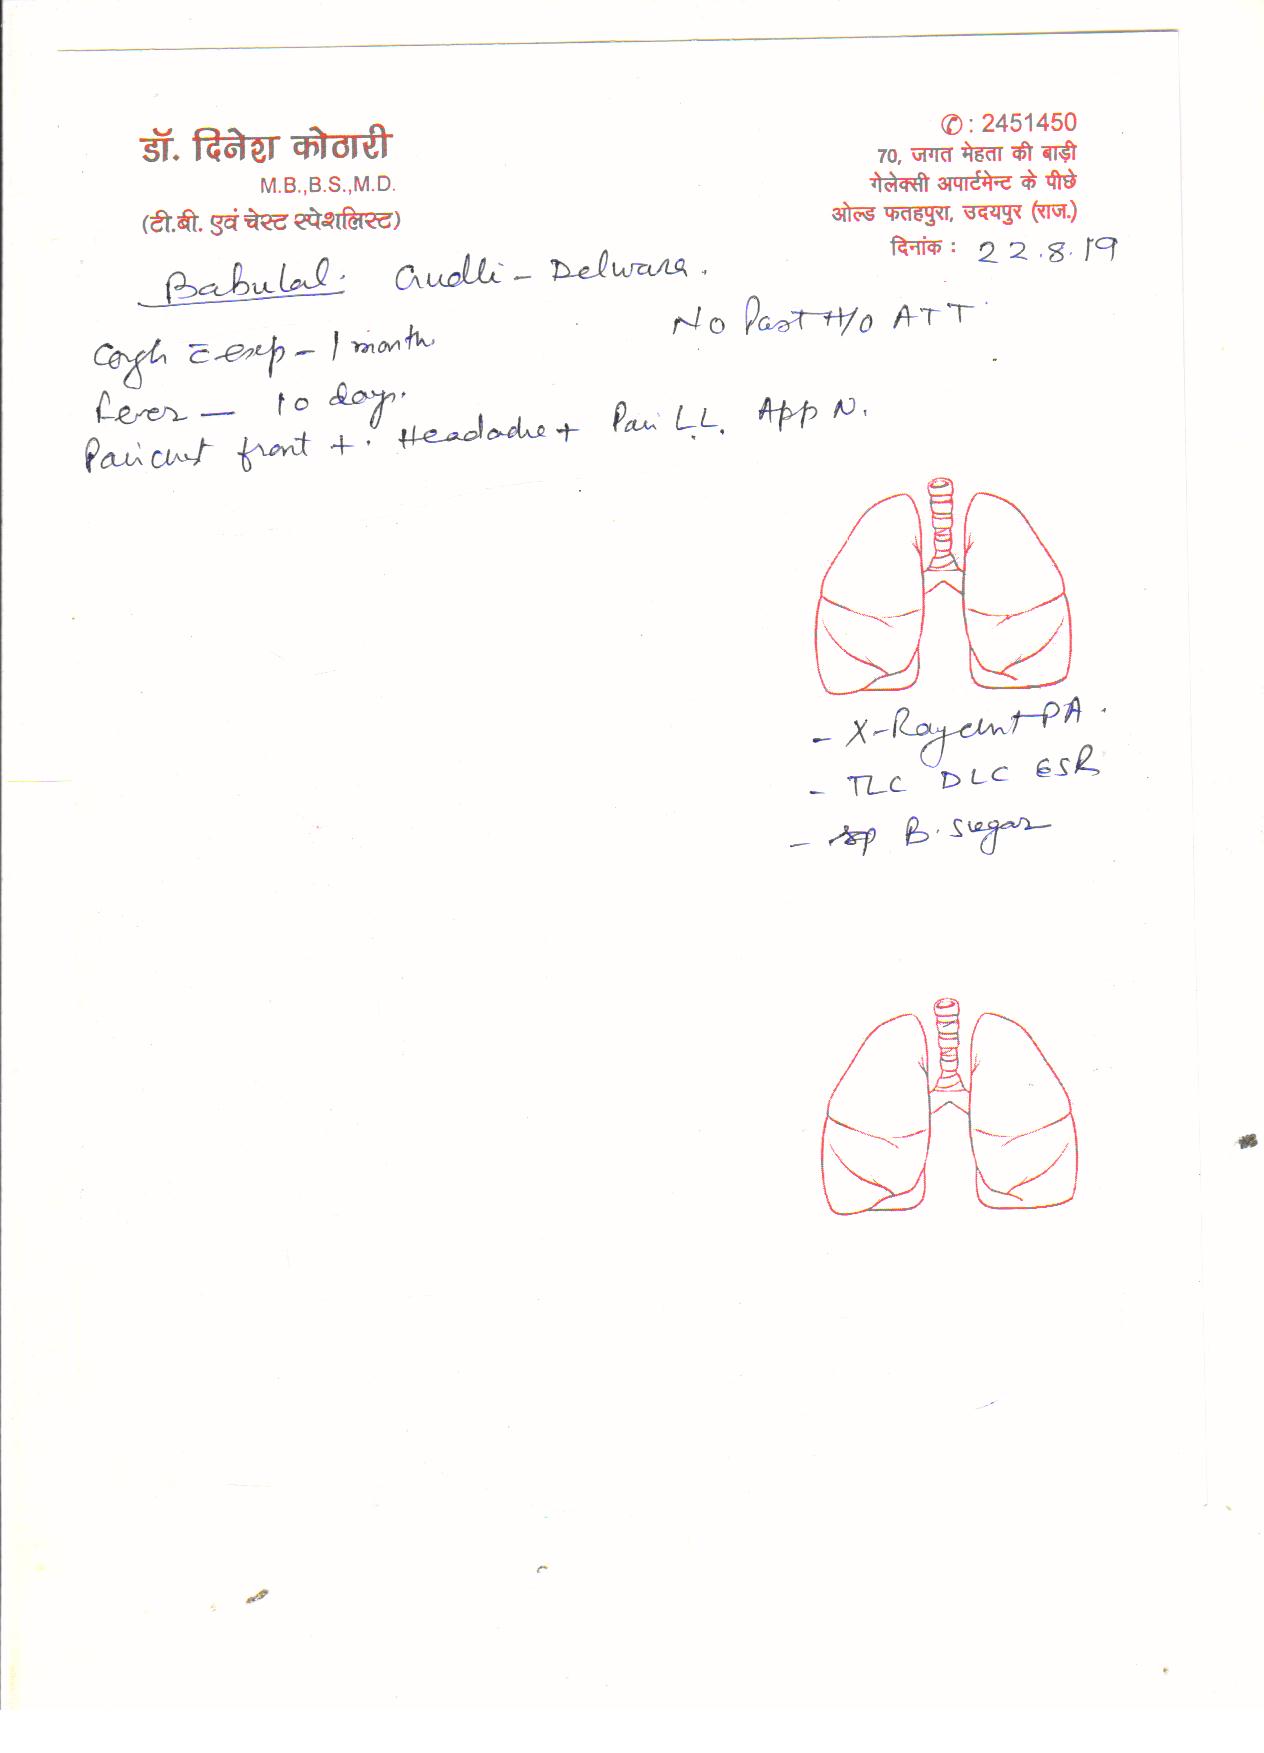 डॉ. दिनेश कोठारी
M.B.,B.S.,M.D.
(टी.बी. एवं चेस्ट स्पेशलिस्ट)
✆ : 2451450
70, जगत मेहता की बाड़ी
गेलेक्सी अपार्टमेन्ट के पीछे
ओल्ड फतहपुरा, उदयपुर (राज.)
दिनांक : 22.8.19
Babulal. Gudli - Delwara.
No Past H/o ATT
Cough c̄ exp - 1 month
Fever - 10 days.
Pain chest front +. Headache + Pain L.L. App N.
- X-Ray chest PA.
- TLC DLC ESR
- B. Sugar